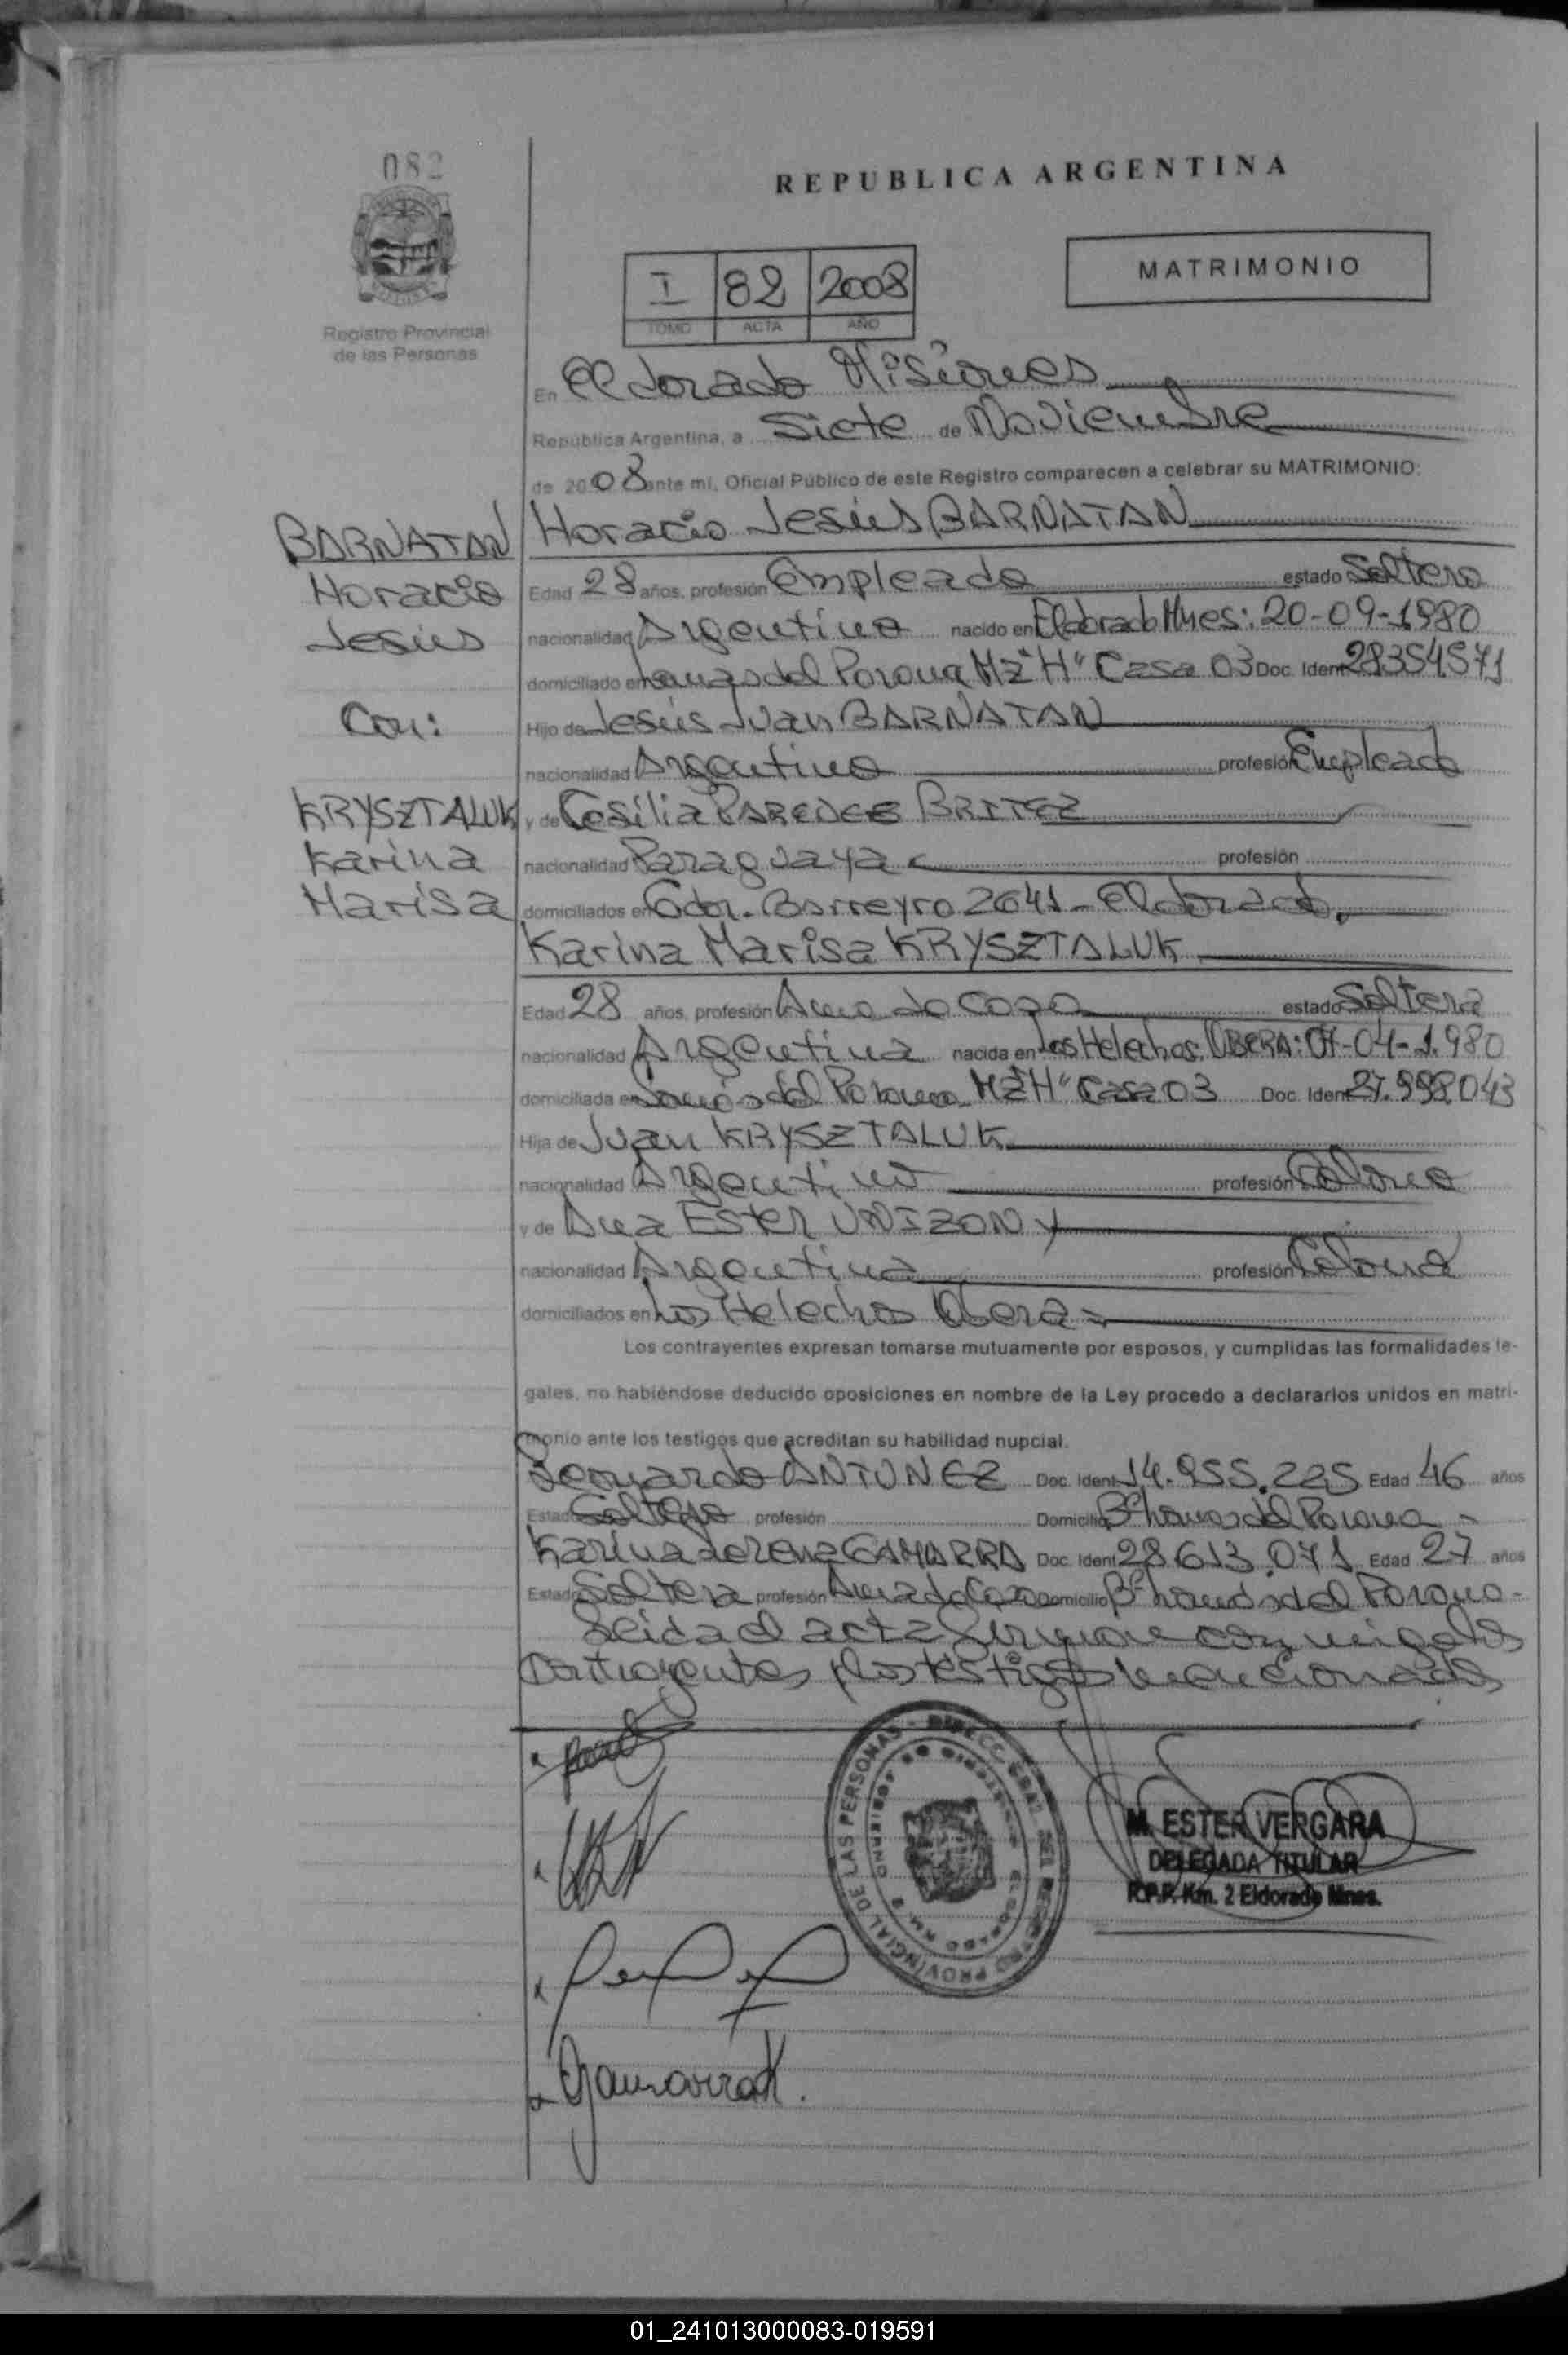 082
REPUBLICA ARGENTINA
MATRIMONIO
I 82 2008
TOMO ACTA AÑO
Registro Provincial
de las Personas
En Eldorado Misiones
República Argentina, a Siete de Noviembre
de 2008 ante mí, Oficial Público de este Registro comparecen a celebrar su MATRIMONIO:
BARNATAN
Horacio
Jesús
Con:
KRYSZTALUK
Karina
Marisa
Horacio Jesús BARNATAN
Edad 28 años, profesión Empleado estado Soltero
nacionalidad Argentino nacido en Eldorado Mnes: 20-09-1980
domiciliado en Lomas del Parana Mz "H" Casa 03 Doc. Ident 28354571
Hijo de Jesús Juan BARNATAN
nacionalidad Argentino profesión Empleado
y de Cesilia PAREDES BRITEZ
nacionalidad Paraguaya profesión
domiciliados en Gdor. Barreyro 2641 - Eldorado.
Karina Marisa KRYSZTALUK
Edad 28 años, profesión Ama de Casa estado Soltera
nacionalidad Argentina nacida en Los Helechos: OBERA: 07-04-1.980
domiciliada en Lomas del Parana Mz "H" Casa 03 Doc. Ident 27.998.043
Hija de Juan KRYSZTALUK
nacionalidad Argentino profesión Colono
y de Ana Ester UNIZONY
nacionalidad Argentina profesión Colona
domiciliados en Los Helechos Obera =
Los contrayentes expresan tomarse mutuamente por esposos, y cumplidas las formalidades le-
gales, no habiéndose deducido oposiciones en nombre de la Ley procedo a declararlos unidos en matri-
monio ante los testigos que acreditan su habilidad nupcial.
ANTUNEZ Doc. Ident 14.955.225 Edad 46 años
Estado Soltero profesión Domicilio Bº Lomas del Parana -
Karina Lorena GAMARRA Doc. Ident 28613.071 Edad 27 años
Estado Soltera profesión Ama de Casa Domicilio Bº Lomas del Parana -
Leida el acta Firman conmigo los
contrayentes y los testigos mencionados
DIRECC. GRAL. DEL REGISTRO PROVINCIAL DE LAS PERSONAS
M. ESTER VERGARA
DELEGADA TITULAR
R.P.P. Km. 2 Eldorado Mnes.
Gamarra K.
01_241013000083-019591